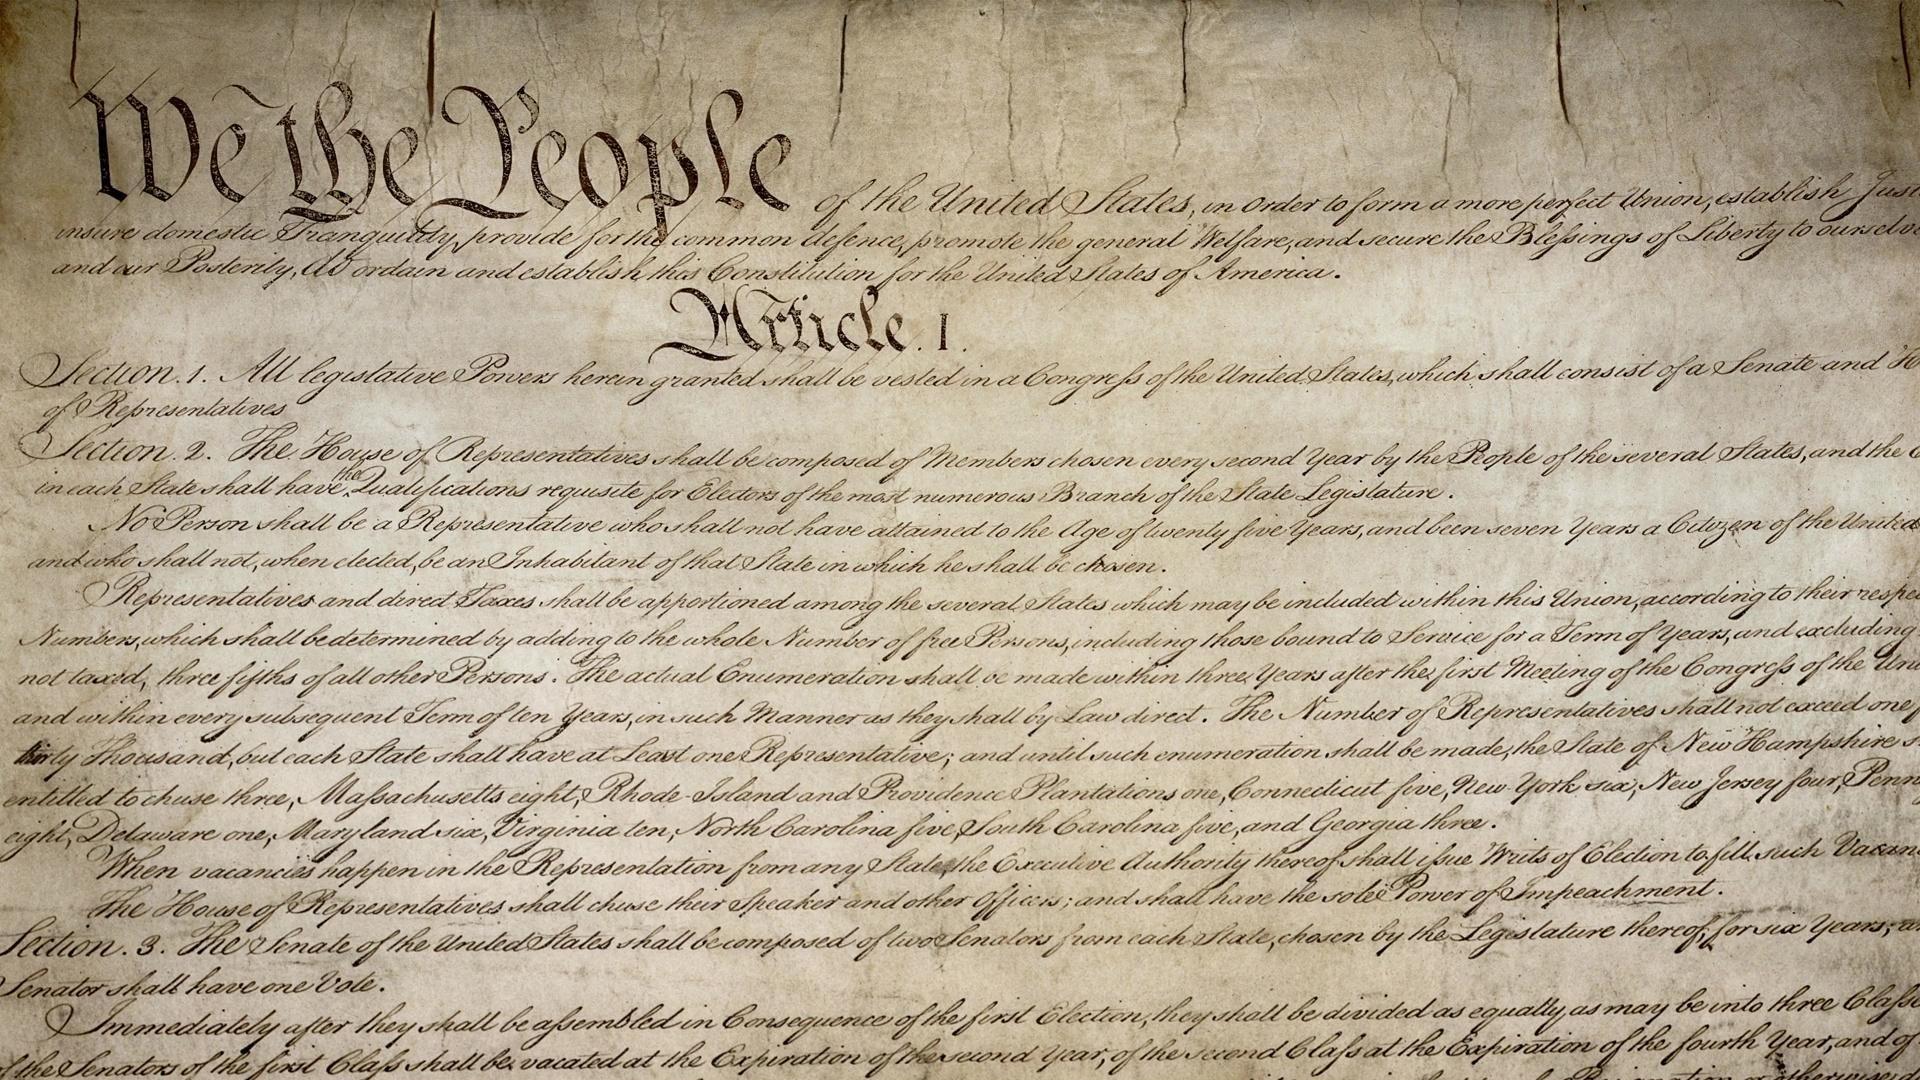 We the People of the United States, in Order to form a more perfect Union, establish Just
insure domestic Tranquility, provide for the common defence, promote the general Welfare, and secure the Blessings of Liberty to ourselve
and our Posterity, do ordain and establish this Constitution for the United States of America.
Article. I.
Section. 1. All legislative Powers herein granted shall be vested in a Congress of the United States, which shall consist of a Senate and H
of Representatives
Section. 2. The House of Representatives shall be composed of Members chosen every second Year by the People of the several States, and the E
in each State shall have the Qualifications requisite for Electors of the most numerous Branch of the State Legislature.
No Person shall be a Representative who shall not have attained to the Age of twenty five Years, and been seven Years a Citizen of the United
and who shall not, when elected, be an Inhabitant of that State in which he shall be chosen.
Representatives and direct Taxes shall be apportioned among the several States which may be included within this Union, according to their respe
Numbers, which shall be determined by adding to the whole Number of free Persons, including those bound to Service for a Term of Years, and excluding
not taxed, three fifths of all other Persons. The actual Enumeration shall be made within three Years after the first Meeting of the Congress of the Uni
and within every subsequent Term of ten Years, in such Manner as they shall by Law direct. The Number of Representatives shall not exceed one f
thirty Thousand, but each State shall have at Least one Representative; and until such enumeration shall be made, the State of New Hampshire s
entitled to chuse three, Massachusetts eight, Rhode-Island and Providence Plantations one, Connecticut five, New-York six, New Jersey four, Penn
eight, Delaware one, Maryland six, Virginia ten, North Carolina five, South Carolina five, and Georgia three.
When vacancies happen in the Representation from any State, the Executive Authority thereof shall issue Writs of Election to fill such Vacan
The House of Representatives shall chuse their Speaker and other Officers; and shall have the sole Power of Impeachment.
Section. 3. The Senate of the United States shall be composed of two Senators from each State, chosen by the Legislature thereof, for six Years; a
Senator shall have one Vote.
Immediately after they shall be assembled in Consequence of the first Election, they shall be divided as equally as may be into three Classe
of the Senators of the first Class shall be vacated at the Expiration of the second Year, of the second Class at the Expiration of the fourth Year, and of